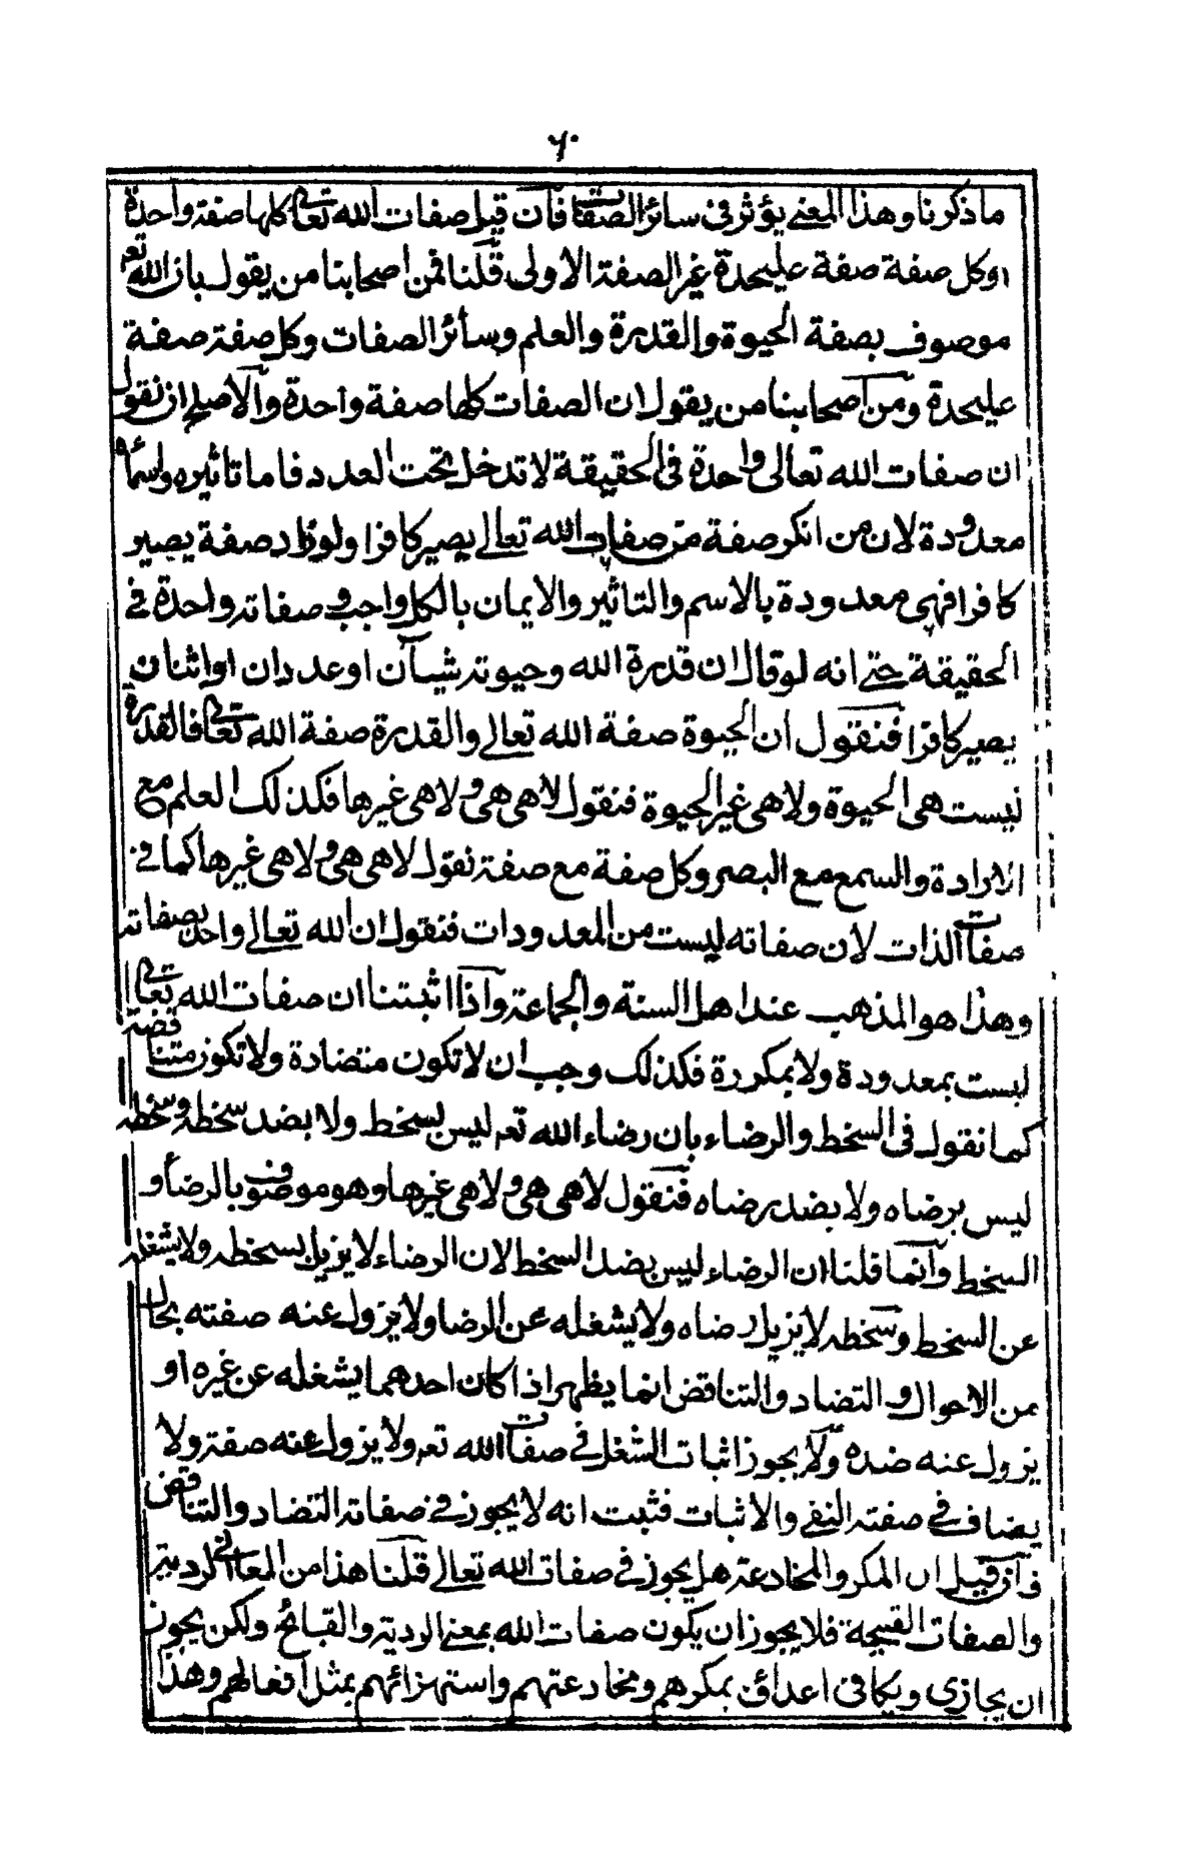 ٦٠
ما ذكرنا وهذا المعنى يؤثر فى سائر الصفات فان قيل صفات الله تعالى كلها صفة واحدة
اوكل صفة صفة عليحدة غير الصفة الاولى قلنا فمن اصحابنا من يقول بان الله تعم
موصوف بصفة الحيوة والقدرة والعلم وسائر الصفات وكل صفة صفة
عليحدة ومن اصحابنا من يقول ان الصفات كلها صفة واحدة والاصل ان نقول
ان صفات الله تعالى واحدة فى الحقيقة لا تدخل تحت العدد فاما تاثيره واسماؤه
معدودة لان من انكر صفة من صفات الله تعالى يصير كافرا ولو زاد صفة يصير
كافرا فهى معدودة بالاسم والتاثير والايمان بالكل واجب و صفاته واحدة فى
الحقيقة حتى انه لو قال ان قدرة الله وحيوته شيآن او عددان او اثنان
يصير كافرا فنقول ان الحيوة صفة الله تعالى والقدرة صفة الله تعالى فالقدرة
ليست هى الحيوة ولا هى غير الحيوة فنقول لا هى هى ولا هى غيرها فكذلك العلم مع
الارادة والسمع مع البصر وكل صفة مع صفة نقول لا هى هى ولا هى غيرها كما فى
صفات الذات لان صفاته ليست من المعدودات فنقول ان الله تعالى واحد بصفاته
وهذا هو المذهب عند اهل السنة والجماعة واذا اثبتنا ان صفات الله تعالى
ليست بمعدودة ولا بمكررة فكذلك وجب ان لا تكون متضادة ولا تكون متناقضة
كما نقول فى السخط والرضاء بان رضاء الله تعم ليس بسخط ولا بضد سخطه وسخطه
ليس برضاه ولا بضد رضاه فنقول لا هى هى ولا هى غيرها وهو موصوف بالرضا و
السخط وانما قلنا ان الرضاء ليس بضد السخط لان الرضاء لا يزيل بسخطه ولا يشغله
عن السخط وسخطه لا يزيل رضاه ولا يشغله عن الرضا ولا يزول عنه صفته بحال
من الاحوال و التضاد والتناقض انما يظهر اذا كان احدهما يشغله عن غيره او
يزول عنه ضده ولا يجوز اثبات الشغل فى صفات الله تعم ولا يزول عنه صفة ولا
يضاف فى صفته النفى والاثبات فثبت انه لا يجوز فى صفاته التضاد والتناقض
فان قيل ان المكر والمخادعة هل يجوز فى صفات الله تعالى قلنا هذا من المعانى الردية
والصفات القبيحة فلا يجوز ان يكون صفات الله بمعنى الردية والقبائح ولكن يجوز
ان يجازى ويكافى اعدائه بمكرهم ومخادعتهم واستهزائهم بمثل افعالهم وهذا